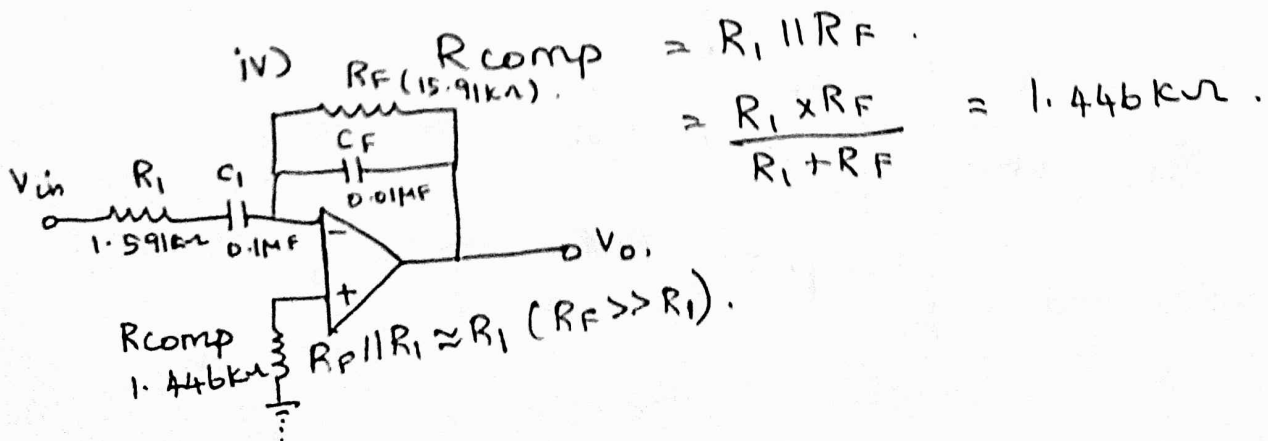 iv) Rcomp = R1 || RF .
= R1 x RF / R1 + RF = 1.446 KΩ .
RF (15.91KΩ) .
CF
0.01MF
Vin R1 C1
1.591KΩ 0.1MF
-
+
Vo.
Rcomp
1.446KΩ
RF || R1 ≈ R1 (RF >> R1) .